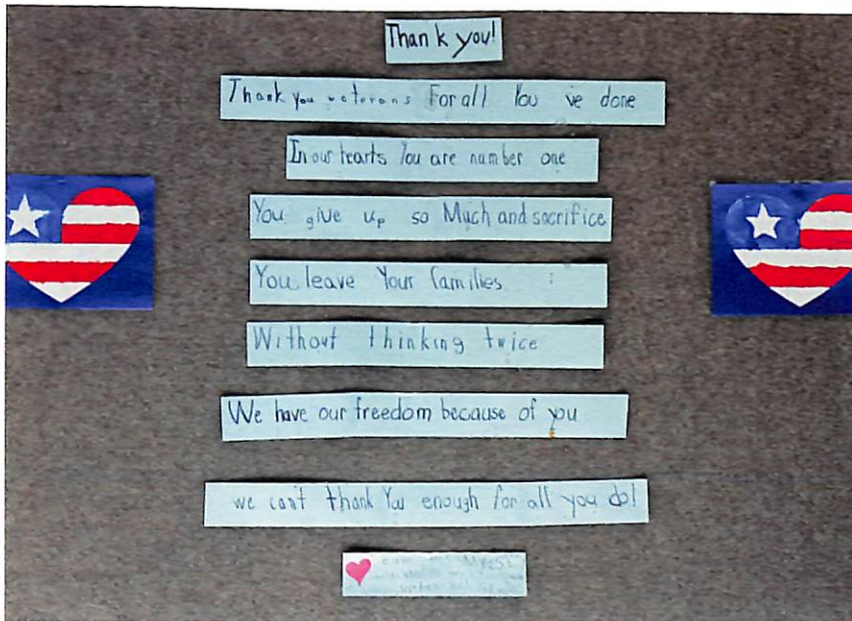 Thank you!
Thank you veterans For all You 've done
In our hearts You are number one
You give up so Much and sacrifice
You leave Your families
Without thinking twice
We have our freedom because of you
we can't thank You enough for all you do!